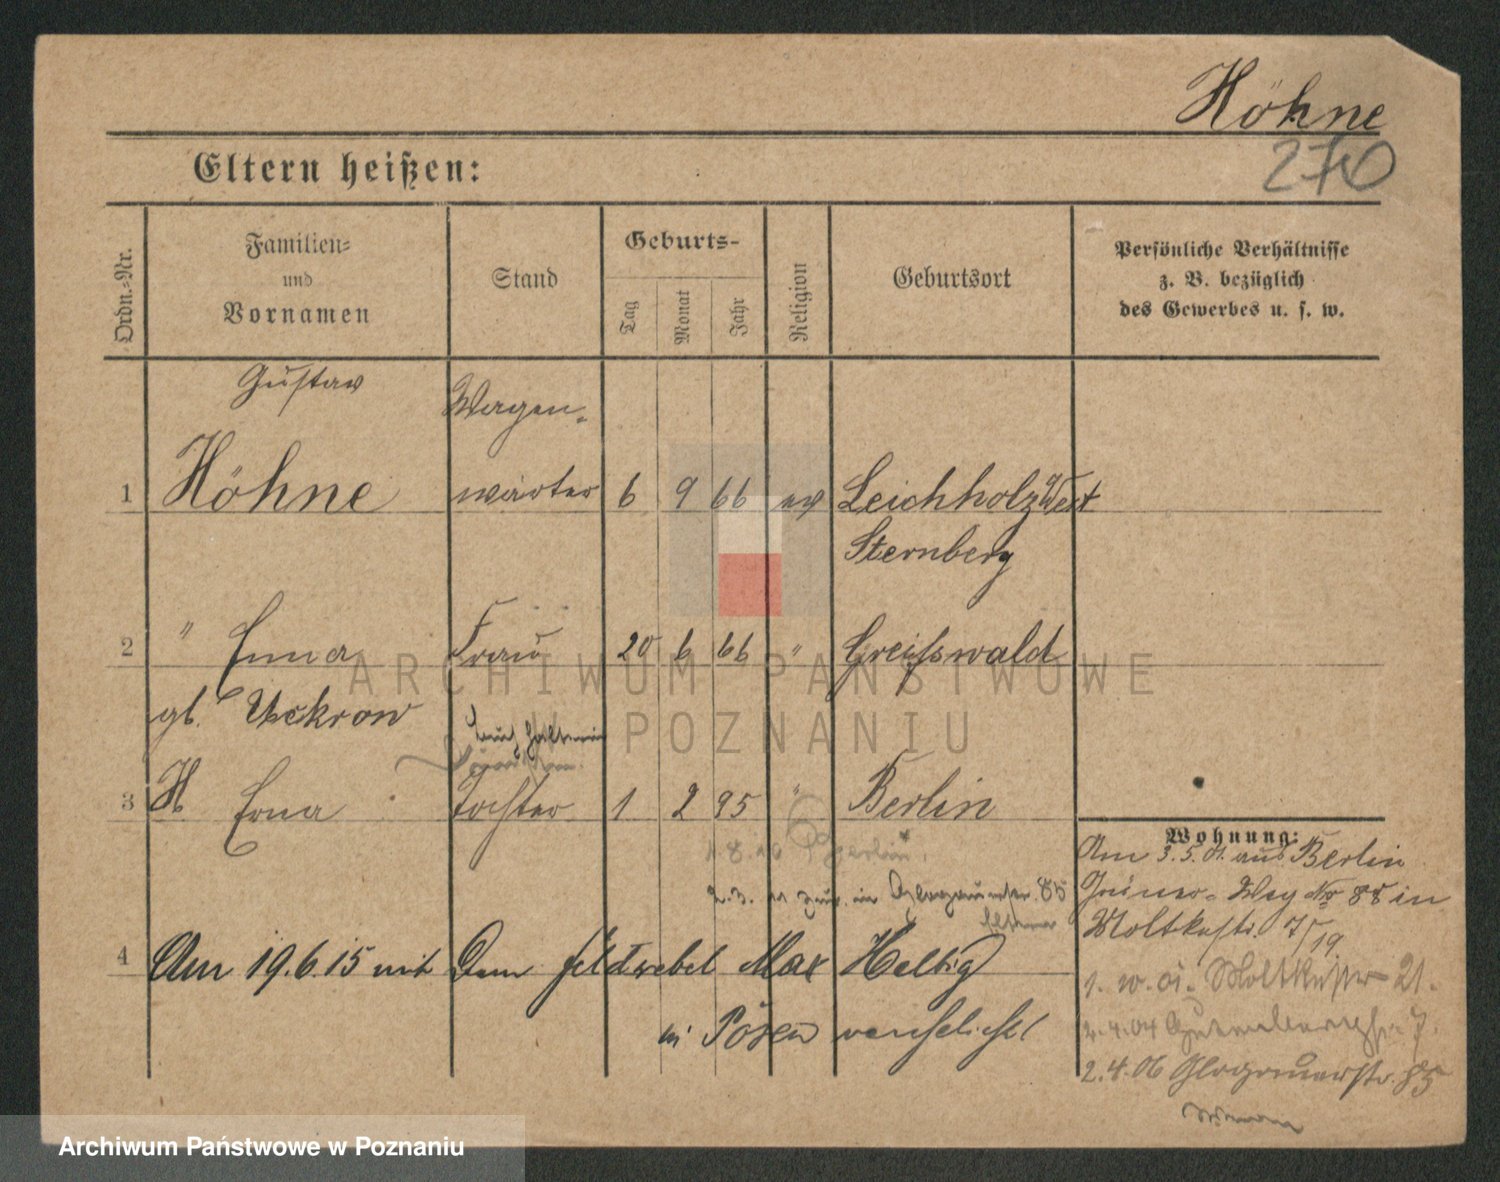 Höhne
270
Eltern heißen:
Ordn.-Nr.
Familien-
und
Vornamen
Stand
Geburts-
Tag
Monat
Jahr
Religion
Geburtsort
Persönliche Verhältnisse
z. B. bezüglich
des Gewerbes u. s. w.
Gustav
Wagen-
1 Höhne wärter 6 9 66 ev Leichholz West
Sternberg
2 " Enna Frau 20 6 66 " Greifswald
gb. Ueckrow
Buchhalterin
3 H Erna Tochter 1 2 95 " Berlin
Wohnung:
Am 3.5.01. aus Berlin
1.8.10 Berlin
Grüner-Weg No 88 in
2.3.11 zur. in Glogauerstr. 85
Eltern
Moltkestr. 7/19
4 Am 19.6.15 mit Dem Feldwebel Max Helbig
1.10.01. Moltkestr 21.
in Posen verehelicht
2.4.04 Gutenbergstr. 7.
2.4.06 Glogauerstr. 85
ARCHIWUM PAŃSTWOWE
W POZNANIU
Archiwum Państwowe w Poznaniu